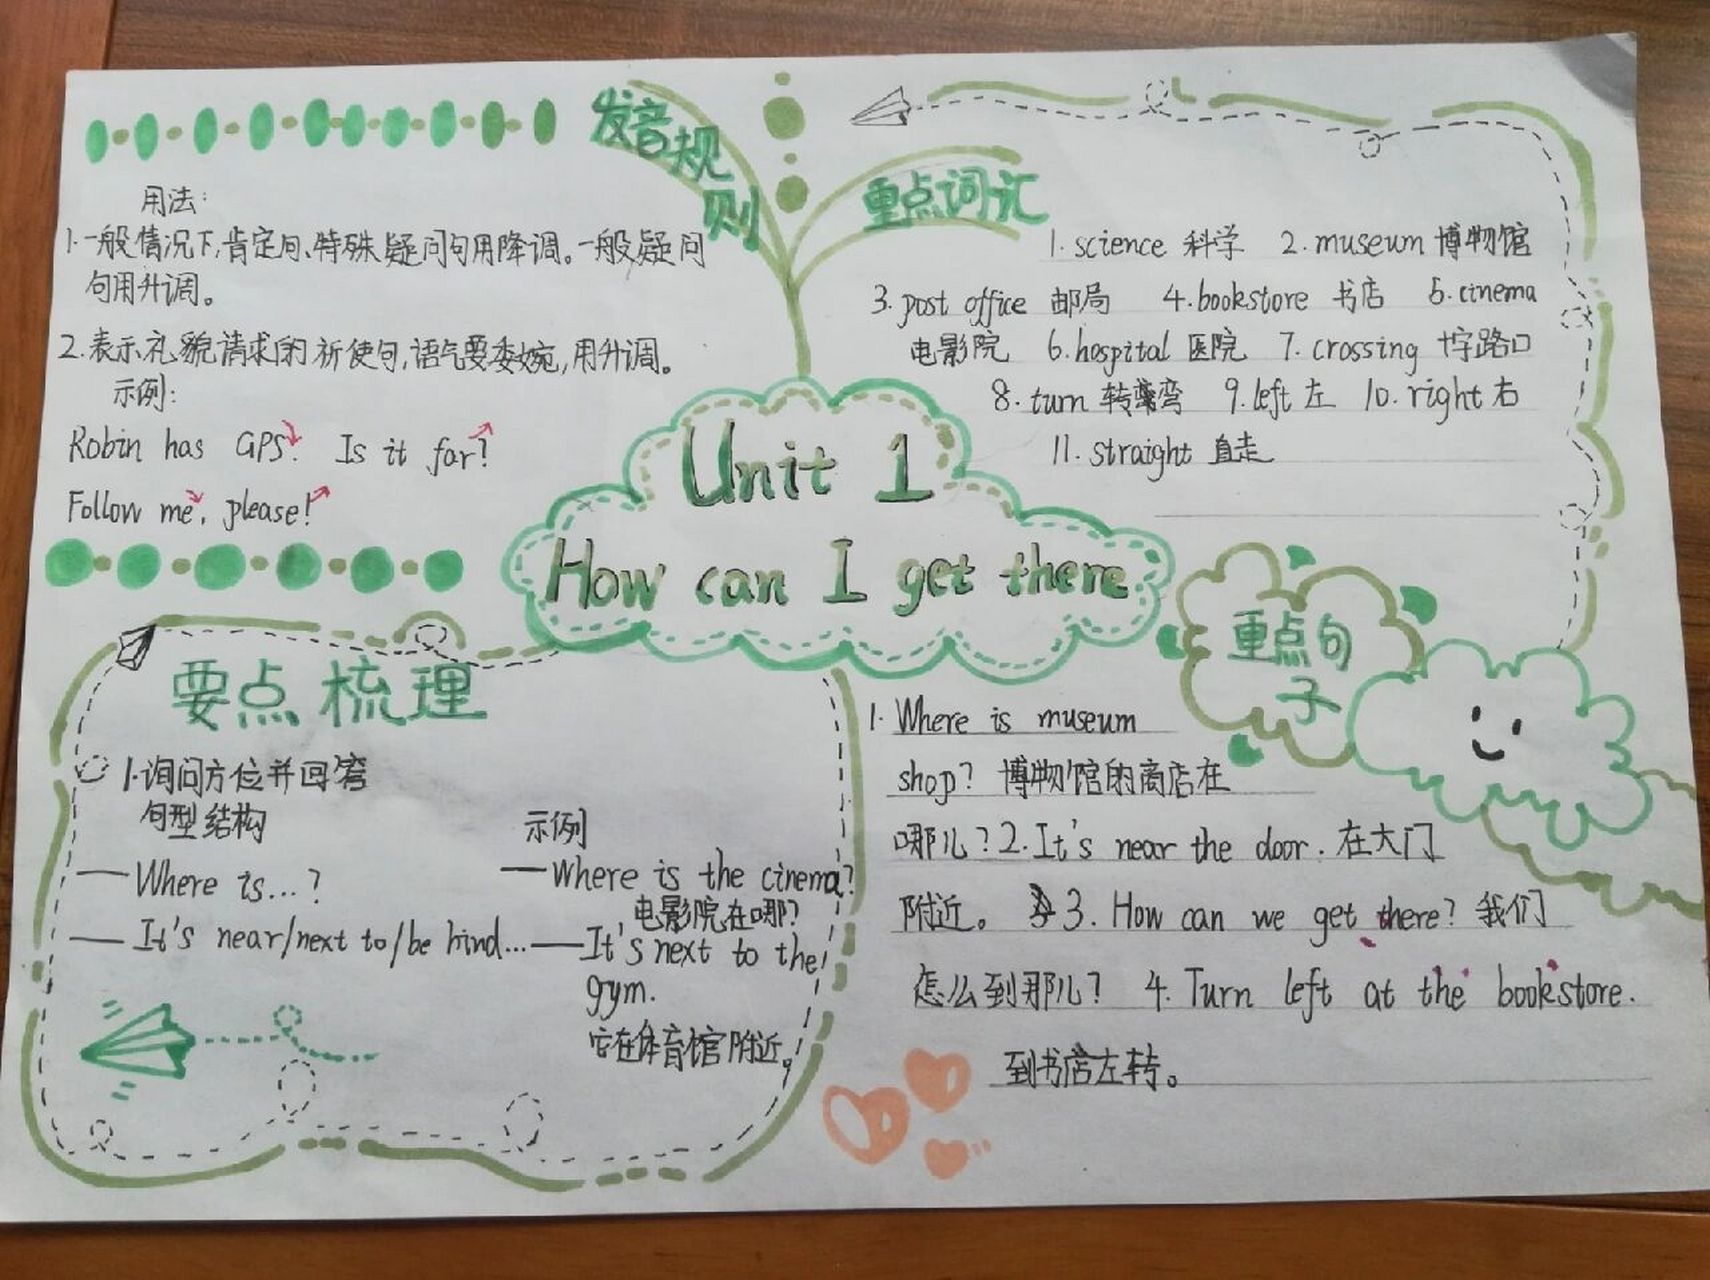 发音规则
用法:
1.一般情况下,肯定句、特殊疑问句用降调。一般疑问
句用升调。
2.表示礼貌请求的祈使句,语气要委婉,用升调。
示例:
Robin has GPS. Is it far?
Follow me, please!
重点词汇
1. science 科学 2. museum 博物馆
3. post office 邮局 4. bookstore 书店 5. cinema
电影院 6. hospital 医院 7. crossing 十字路口
8. turn 转弯 9. left 左 10. right 右
11. straight 直走
Unit 1
How can I get there
要点梳理
1.询问方位并回答
句型结构
— Where is...?
— It's near/next to/be hind...
示例
— Where is the cinema?
电影院在哪?
— It's next to the
gym.
它在体育馆附近。
重点句
子
1. Where is museum
shop? 博物馆的商店在
哪儿? 2. It's near the door. 在大门
附近。 3. How can we get there? 我们
怎么到那儿? 4. Turn left at the bookstore.
到书店左转。